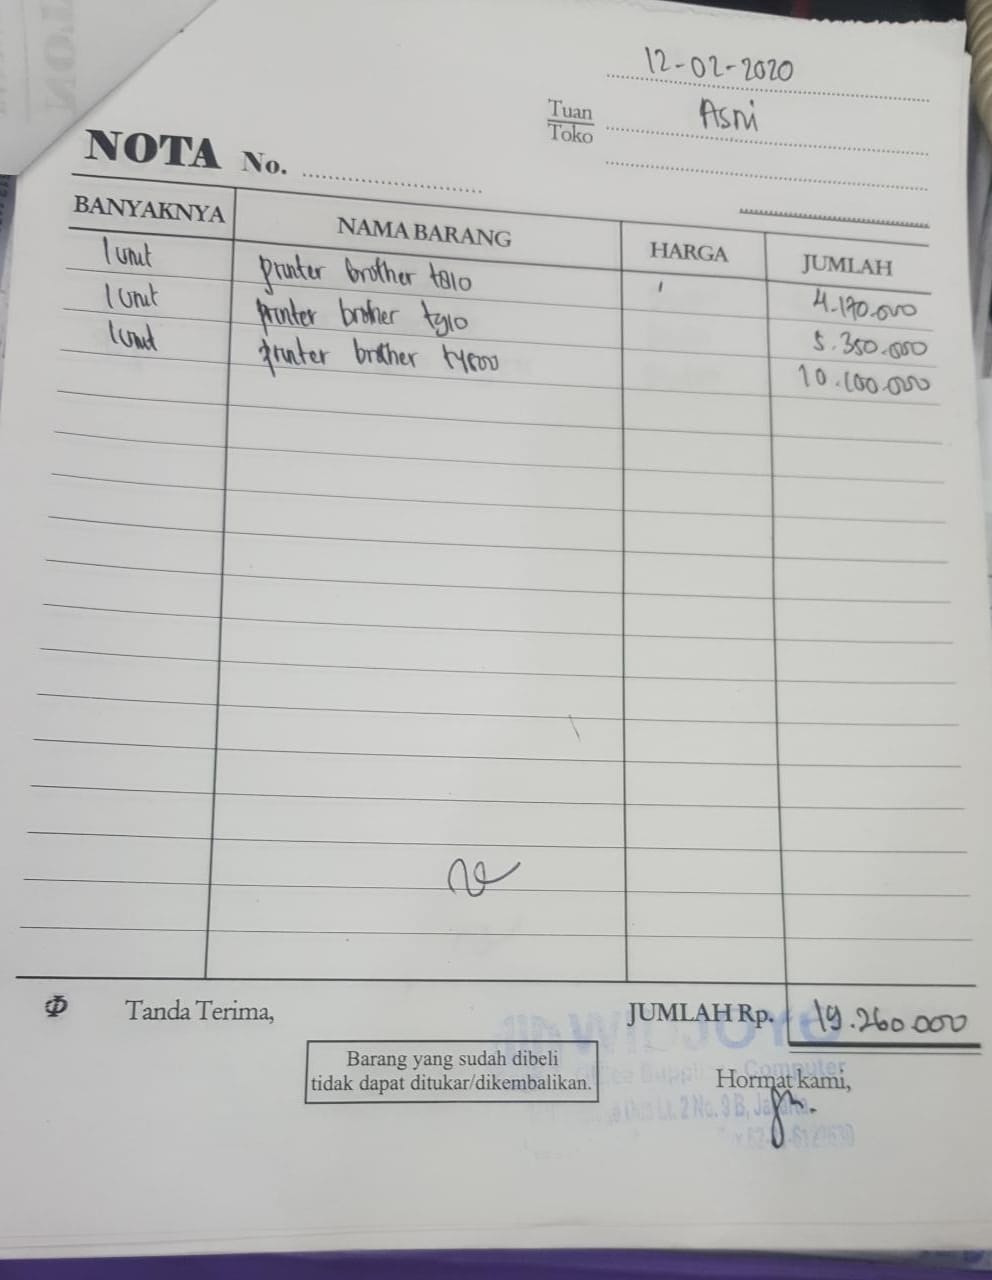 12-02-2020
Tuan
Toko
Asni
NOTA No.
BANYAKNYA NAMA BARANG HARGA JUMLAH
1 unit printer brother t810 4.170.000
1 unit printer brother t910 5.350.000
1 unit printer brother t4500 10.100.000
Φ Tanda Terima, JUMLAH Rp. 19.260.000
Barang yang sudah dibeli
tidak dapat ditukar/dikembalikan.
Computer
Hormat kami,
Lt. 2 No. 9 B,